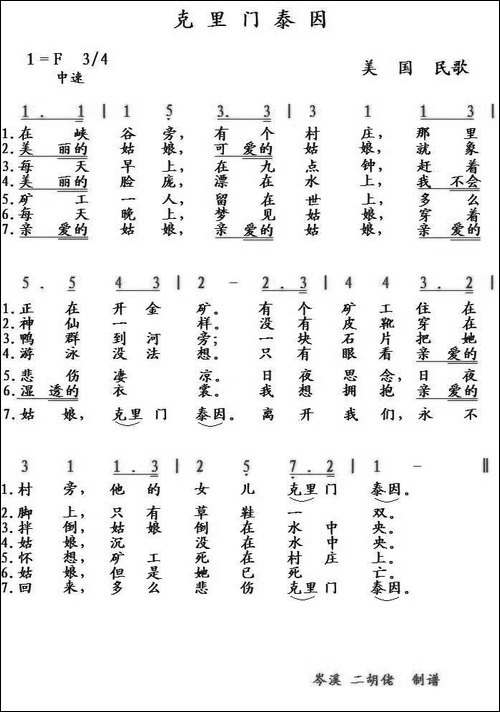 克里门泰因
1=F 3/4
中速
美国 民歌
1. 1 | 1 5 3. 3 | 3 1 1 3 |
1.在 峡 谷 旁， 有 个 村 庄， 那 里
2.美 丽的 姑 娘， 可 爱的 姑 娘， 就 象
3.每 天 早 上， 在 九 点 钟， 赶 着
4.美 丽的 脸 庞， 漂 在 水 上， 我 不会
5.矿 工 一 人， 留 在 世 上， 多 么
6.每 天 晚 上， 梦 见 姑 娘， 穿 着
7.亲 爱的 姑 娘， 亲 爱的 姑 娘， 亲 爱的
5. 5 4 3 | 2 - 2. 3 | 4 4 3. 2 |
1.正 在 开 金 矿。 有 个 矿 工 住 在
2.神 仙 一 样。 没 有 皮 靴 穿 在
3.鸭 群 到 河 旁； 一 块 石 片 把 她
4.游 泳 没 法 想。 只 有 眼 看 亲 爱的
5.悲 伤 凄 凉。 日 夜 思 念， 日 夜
6.湿 透的 衣 裳。 我 想 拥 抱 亲 爱的
7.姑 娘， 克里 门 泰因。 离 开 我 们， 永 不
3 1 1. 3 | 2 5 7. 2 | 1 - ‖
1.村 旁， 他 的 女 儿 克里 门 泰因。
2.脚 上， 只 有 草 鞋 一 双。
3.拌 倒， 姑 娘 倒 在 水 中 央。
4.姑 娘， 沉 没 在 水 中 央。
5.怀 想， 矿 工 死 在 村 庄 上。
6.姑 娘， 但 是 她 已 死 亡。
7.回 来， 多 么 悲 伤 克里 门 泰因。
岑溪 二胡佬 制谱